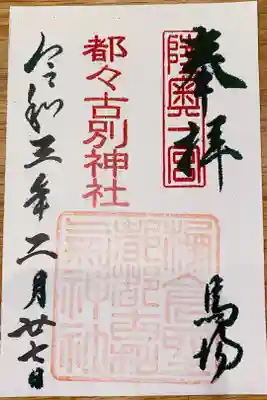 奉拝
陸奥一宮
馬場
都々古別神社
棚倉
都都古和
氣神社
令和三年二月廿七日